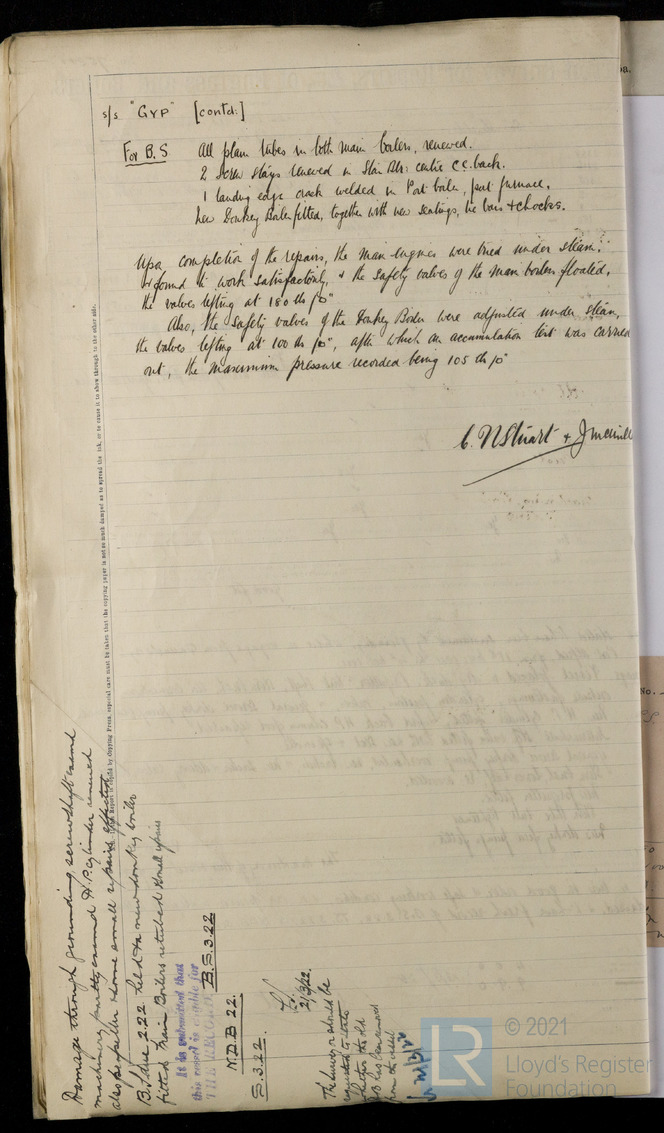 s/s "GYP" [contd:]
For B.S. All plain tubes in both main boilers, renewed.
2 screw stays renewed in Star Blr: centre c.c. back.
1 landing edge crack welded in Port boiler, port furnace.
New Donkey Boiler fitted, together with new seatings, tie bars & chocks.
Upon completion of the repairs, the main engines were tried under steam
& found to work satisfactorily, & the safety valves of the main boilers floated,
the valves lifting at 180 lbs p □"
Also, the safety valves of the Donkey Boiler were adjusted under steam,
the valves lifting at 100 lbs p □", after which an accumulation test was carried
out, the maximum pressure recorded being 105 lbs p □"
C. N Stuart &
to spread the ink, or to cause it to show through to the other side.
Damage through grounding, screwshaft examd
machinery partly examd H.P. cylinder renewed
also & some small repairs effected
B.S. due 2.22 held & a new donkey boiler
fitted Main Boilers retubed small repairs
It is submitted that
this vessel is eligible for
THE RECORD. B.S. 3.22
N.D.B 22.
S. 3.22.
21/3/22
The surveyor should be
requested to state
whether the old
DB has been removed
from the vessel
© 2021
Lloyd's Register
Foundation
LR
No.